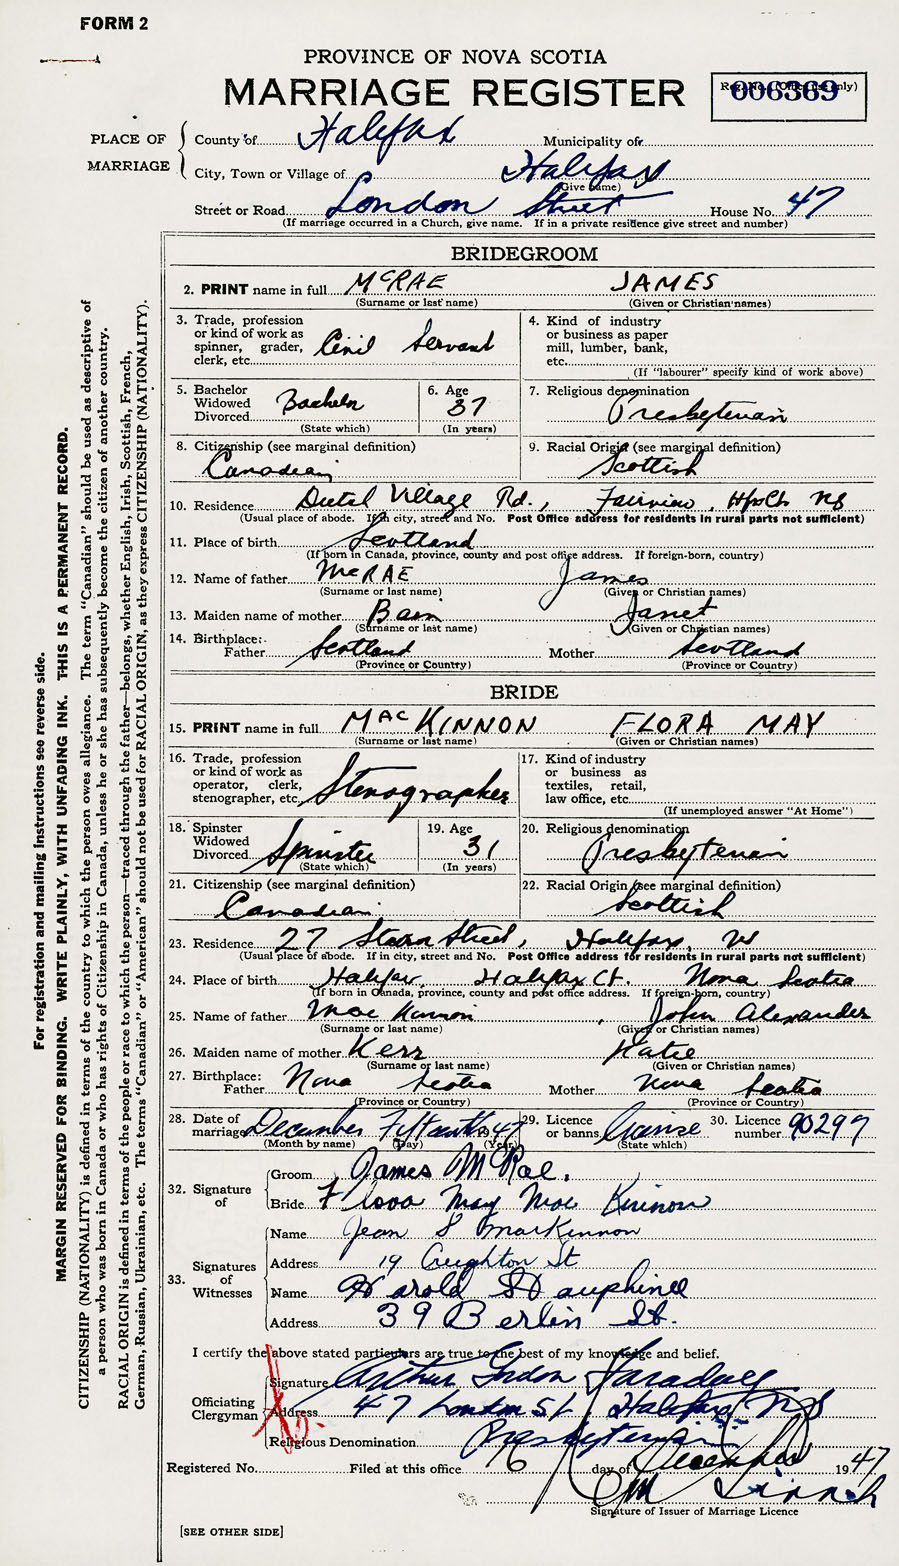 FORM 2
PROVINCE OF NOVA SCOTIA
MARRIAGE REGISTER
006369
PLACE OF MARRIAGE
County of Halifax Municipality of
City, Town or Village of Halifax
(Give name)
Street or Road London Street House No. 47
(If marriage occurred in a Church, give name. If in a private residence give street and number)
BRIDEGROOM
2. PRINT name in full McRAE JAMES
(Surname or last name) (Given or Christian names)
3. Trade, profession or kind of work as spinner, grader, clerk, etc. Civil Servant
4. Kind of industry or business as paper mill, lumber, bank, etc.
(If "labourer" specify kind of work above)
5. Bachelor Widowed Divorced Bachelor
(State which)
6. Age 37
(In years)
7. Religious denomination Presbyterian
8. Citizenship (see marginal definition) Canadian
9. Racial Origin (see marginal definition) Scottish
10. Residence Dutch Village Rd., Fairview, Hfx Co NS
(Usual place of abode. If in city, street and No. Post Office address for residents in rural parts not sufficient)
11. Place of birth Scotland
(If born in Canada, province, county and post office address. If foreign-born, country)
12. Name of father McRAE James
(Surname or last name) (Given or Christian names)
13. Maiden name of mother Bain Janet
(Surname or last name) (Given or Christian names)
14. Birthplace:- Father Scotland Mother Scotland
(Province or Country) (Province or Country)
BRIDE
15. PRINT name in full MacKINNON FLORA MAY
(Surname or last name) (Given or Christian names)
16. Trade, profession or kind of work as operator, clerk, stenographer, etc. Stenographer
17. Kind of industry or business as textiles, retail, law office, etc.
(If unemployed answer "At Home")
18. Spinster Widowed Divorced Spinster
(State which)
19. Age 31
(In years)
20. Religious denomination Presbyterian
21. Citizenship (see marginal definition) Canadian
22. Racial Origin (see marginal definition) Scottish
23. Residence 27 Street, Halifax, NS
(Usual place of abode. If in city, street and No. Post Office address for residents in rural parts not sufficient)
24. Place of birth Halifax, Halifax Ct. Nova Scotia
(If born in Canada, province, county and post office address. If foreign-born, country)
25. Name of father MacKinnon, John Alexander
(Surname or last name) (Given or Christian names)
26. Maiden name of mother Kerr Katie
(Surname or last name) (Given or Christian names)
27. Birthplace: Father Nova Scotia Mother Nova Scotia
(Province or Country) (Province or Country)
28. Date of marriage December Fifteenth 1947
(Month by name) (Day) (Year)
29. Licence or banns
(State which)
30. Licence number 90297
32. Signature of
Groom James McRae.
Bride Flora May MacKinnon
33. Signatures of Witnesses
Name Jean S MacKinnon
Address 19 Creighton St
Name Harold Dauphinee
Address 39 Berlin St.
I certify the above stated particulars are true to the best of my knowledge and belief.
Officiating Clergyman
Signature Arthur Gordon Faraday
Address 47 London St Halifax NS
Religious Denomination Presbyterian
Registered No. Filed at this office 16 day of December 1947
Signature of Issuer of Marriage Licence
[SEE OTHER SIDE]
For registration and mailing instructions see reverse side.
MARGIN RESERVED FOR BINDING. WRITE PLAINLY, WITH UNFADING INK. THIS IS A PERMANENT RECORD.
CITIZENSHIP (NATIONALITY) is defined in terms of the country to which the person owes allegiance. The term "Canadian" should be used as descriptive of
a person who was born in Canada or who has rights of Citizenship in Canada, unless he or she has subsequently become the citizen of another country.
RACIAL ORIGIN is defined in terms of the people or race to which the person—traced through the father—belongs, whether English, Irish, Scottish, French,
German, Russian, Ukrainian, etc. The terms "Canadian" or "American" should not be used for RACIAL ORIGIN, as they express CITIZENSHIP (NATIONALITY).